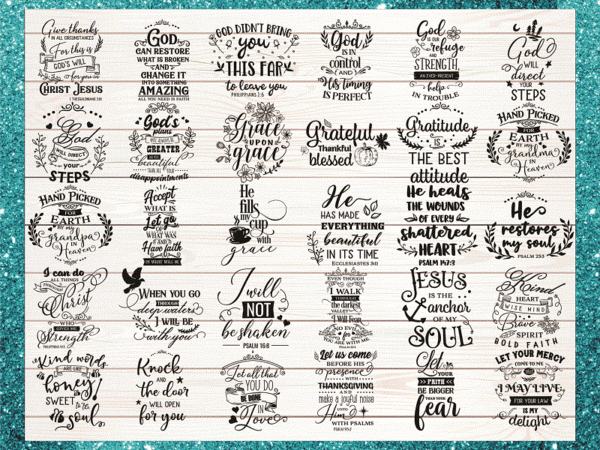 Give thanks
IN ALL CIRCUMSTANCES
For this is
GOD'S WILL
for you in
CHRIST JESUS
1 THESSALONIANS 5:18
GOD
CAN RESTORE
WHAT IS BROKEN
AND
CHANGE IT
INTO SOMETHING
AMAZING
ALL YOU NEED IS FAITH
GOD DIDN'T BRING
you
THIS FAR
to leave you
PHILIPPIANS 1:6
GOD
IS IN
control
AND
His timing
IS PERFECT
God
IS OUR
refuge
AND
STRENGTH,
AN EVER-PRESENT
help
IN TROUBLE
God
WILL
direct
YOUR
STEPS
God
WILL
DIRECT
your
STEPS
God's
plans
GREATER
beautiful
THAN ALL YOUR
disappointments
Grace
UPON
grace
Grateful
Thankful
blessed
Gratitude
IS
THE BEST
attitude
HAND PICKED
FOR
EARTH
BY my
grandma
IN
Heaven
HAND PICKED
FOR
EARTH
BY my
Grandpa
IN
Heaven
Accept
WHAT IS
Let go
OF
WHAT WAS
AND
Have faith
IN WHAT WILL BE
He
fills
my
cup
with
grace
He
HAS MADE
EVERYTHING
beautiful
IN ITS TIME
ECCLESIASTES 3:11
HE HEALS
THE WOUNDS
OF EVERY
shattered
HEART
PSALM 147:3
He
restores
my soul
PSALM 23:3
I can do
ALL THINGS
Christ
WHO
GIVES ME
Strength
WHEN YOU GO
THROUGH
deep waters
I WILL BE
with you
I will
NOT
be shaken
PSALM 16:8
EVEN THOUGH
I WALK
THROUGH
the darkest
valley
I Will Fear
NO EVIL
for
YOU ARE WITH ME
JESUS
IS THE
anchor
OF MY
SOUL
Kind
HEART
WISE MIND
Brave
SPIRIT
BOLD FAITH
Kind words
ARE LIKE
honey
SWEET
TO THE
soul
Knock
AND
the door
WILL OPEN
for you
Let all that
YOU DO
BE DONE
IN
Love
Let us come
BEFORE HIS
presence
WITH
THANKSGIVING
make a joyful noise
UNTO
Him
WITH PSALMS
Let
YOUR
FAITH
BE BIGGER
THAN YOUR
fear
LET YOUR MERCY
COME TO ME
THAT
I MAY LIVE,
FOR YOUR LAW
IS MY
delight